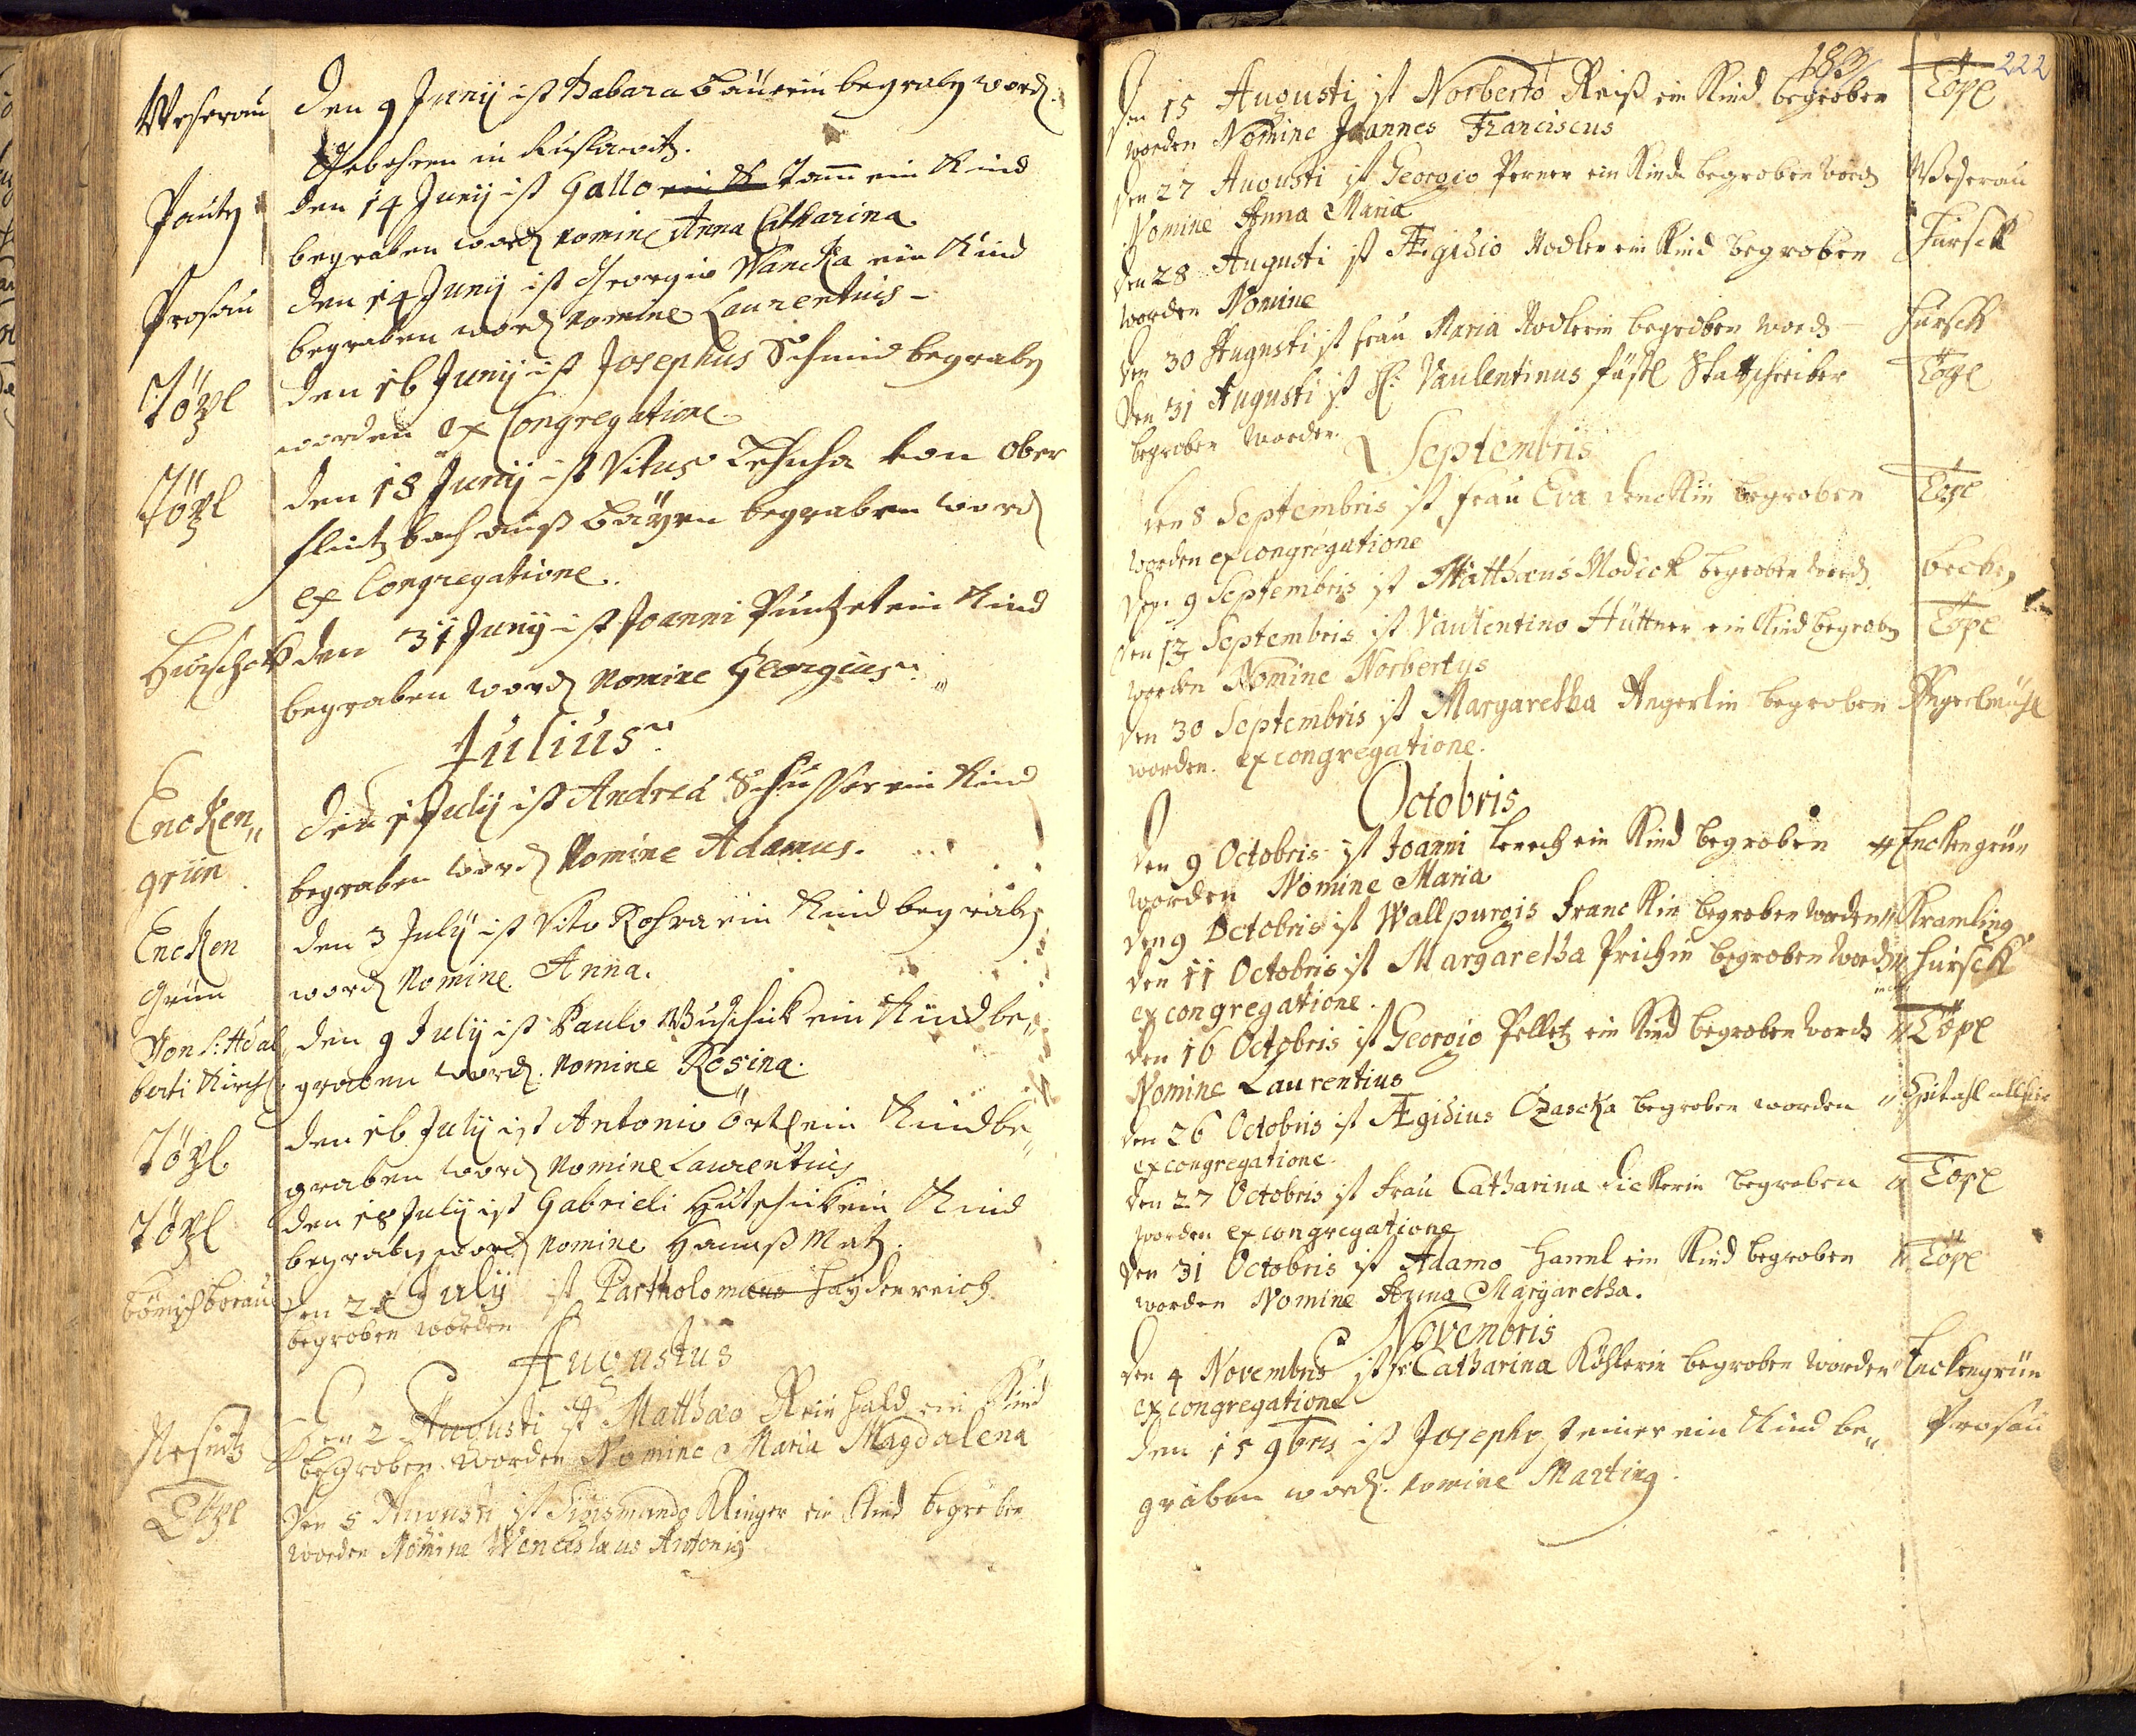 Weserau
den 9 Junij ist Babara Baüerin begraben word.
Gebohren in Kuslawitz.
Pautn
den 14 Junij ist Gallo Tam ein Kind
begraben word nomine Anna Catharina
Prosau
den 14 Junij ist Georgio Wancka ein Kind
begraben word nomine Laurentius –
Töpl
den 16 Junij ist Josephus Schmid begraben
worden ex Congregatione
Töpl
den 18 Junij ist Vitus von Ober
bach auß Bäyrn begraben word
ex Congregatione.
den 31 Junij ist Joanni ein Kind
begraben word Nomine Georgius.
Julius
Encken„
grün
den 1 July ist Andrea Schusser ein Kind
begraben word Nomine Adamus.
Encken
Grün
den 3 July ist Vito Rohra ein Kind begraben
word Nomine Anna.
Von S: Adal
berti Kirch
den 9 July ist Paulo Wuschick ein Kind be„
graben word. nomine Rosina.
Töpl
den 16 July ist Antonio Örtl ein Kind be„
graben word nomine Laurentius
Töpl
den 18 July ist Gabrieli ein Kind
begraben word nomine Hannß Mat.
den 2 July ist Partholomaeus Haydenreich
begraben worden
Augustus
Den 2 Augusti ist Matthaeo Reinhald ein Kind
begraben worden Nomine Maria Magdalena
Töpl
den 5 Augusti ist Sigismundo Klinger ein Kind begraben
worden Nomine Wenceslaus Antonig
183
222
Den 15 Augusti ist Norberto Reiß ein Kind begraben
Töpl
worden Nomine Joannes Franciscus
den 27 Augusti ist Georgio Perner ein Kind begraben word
Weserau
Nomine Anna Maria
den 28 Augusti ist Ægidio Nodler ein Kind begraben
Hursck
worden Nomine
den 30 Augusti ist frau Maria Nodlerin begraben word –
Hursck
den 31 Augusti ist H: Vaulentinus Stattschreiber
Töpl
begraben worden.
Septembris
den 8 Septembris ist frau Eva Denckin begraben
Töpl
worden ex congregatione
Den 9 Septembris ist Matthaeus Modick begraben word.
den 13 Septembris ist Vaulentino Hüttner ein Kind begraben
Töpl
worden Nomine Norbertus
den 30 Septembris ist Margaretha Angerlin begraben
worden. ex congregatione.
Octobris
Den 9 Octobris ist Joanni Lerch ein Kind begraben
Enckengrün
worden Nomine Maria
den 9 Octobris ist Wallpurgis Franckin begraben worden
Kramling
den 11 Octobris ist Margaretha begraben word
Hursck
ex congregatione.
den 16 Octobris ist Georgio Pelletz ein Kind begraben word
Töpl
Nomine Laurentius
den 26 Octobris ist Ægidius Czascka begraben worden
Spitahl allhier
ex congregatione.
den 27 Octobris ist frau Catharina Dickerin begraben
Töpl
worden ex congregatione
den 31 Octobris ist Adamo Haml ein Kind begraben
Töpl
worden Nomine Anna Margaretha.
Novembris
den 4 Novembris ist fr: Catharina Köhlerin begraben worden
Enckengrün
ex congregatione
den 15 9bris ist Josepho Steiner ein Kind be„
Prosau
graben word. nomine Marting